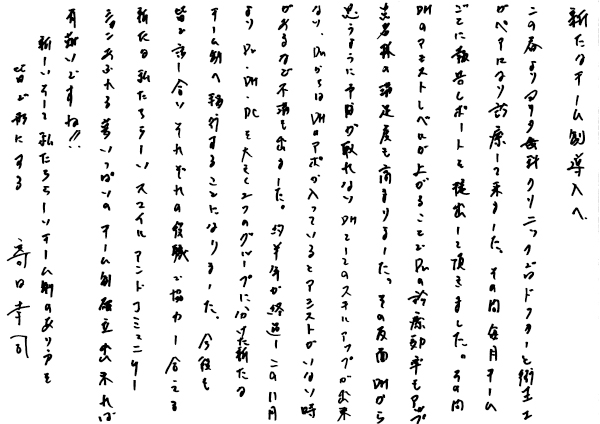 新たなチーム制導入へ
この春よりアリタ歯科クリニックではドクターと衛生士
がペアになり診療して来ました。その間毎月チーム
ごとに報告レポートを提出して頂きました。その間
DHのアシストレベルが上がることでDrの診療効率もアップ
患者様の満足度も高まりました。その反面DHから
思うように予約が取れない DHとしてのスキルアップが出来
ない、DrからはDHのアポが入っているとアシストがいない時
があるなど不満も出ました。約半年が経過しこの11月
より Dr・DH・DCを大きく2つのグループに分けた新たな
チーム制へ移行することになりました。今後も
皆で話し合い それぞれの役職で協力し合える
新たな私たちらしい スマイル アンド コミュニケー
ションあふれる夢いっぱいの チーム制確立出来れば
有難いですね!!
新しいそして私たちらしいチーム制のあり方を
皆で形にする
幸司